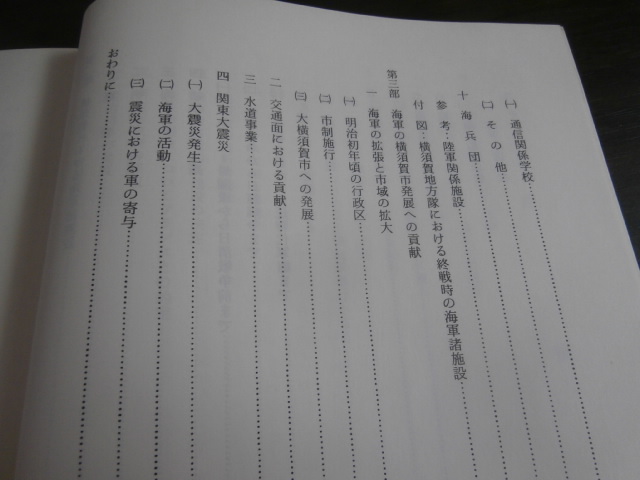 ㈠ 通信関係学校……………………
㈡ その他……………………
十 海兵団……………………
参考：陸軍関係施設……………………
付図：横須賀地方隊における終戦時の海軍諸施設……………………
第三部 海軍の横須賀市発展への貢献
一 海軍の拡張と市域の拡大
㈠ 明治初年頃の行政区……………………
㈡ 市制施行……………………
㈢ 大横須賀市への発展……………………
二 交通面における貢献……………………
三 水道事業……………………
四 関東大震災
㈠ 大震災発生……………………
㈡ 海軍の活動……………………
㈢ 震災における軍の寄与……………………
おわりに……………………